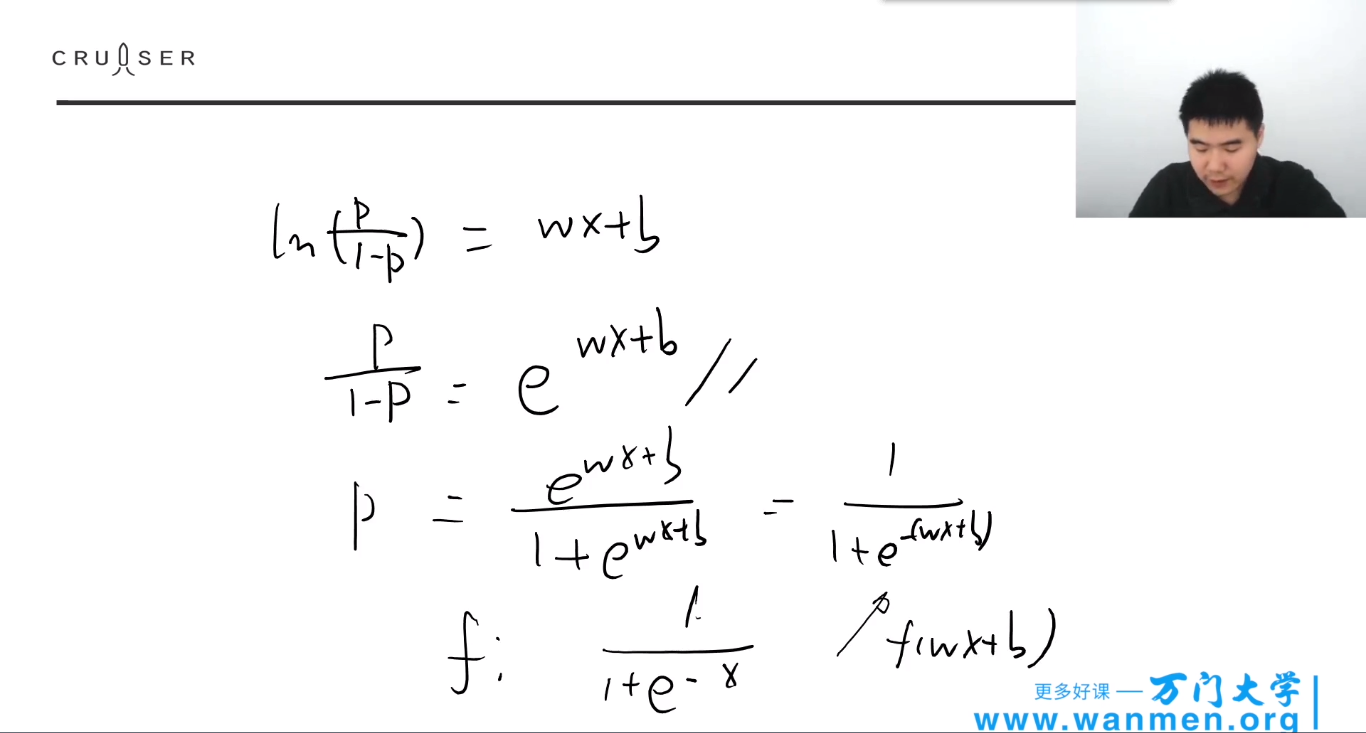 CRUISER
ln(p/(1-p)) = wx+b
p/(1-p) = e^(wx+b) //
p = e^(wx+b)/(1+e^(wx+b)) = 1/(1+e^(-(wx+b)))
f: 1/(1+e^(-x)) ↗ f(wx+b)
更多好课 — 万门大学
www.wanmen.org